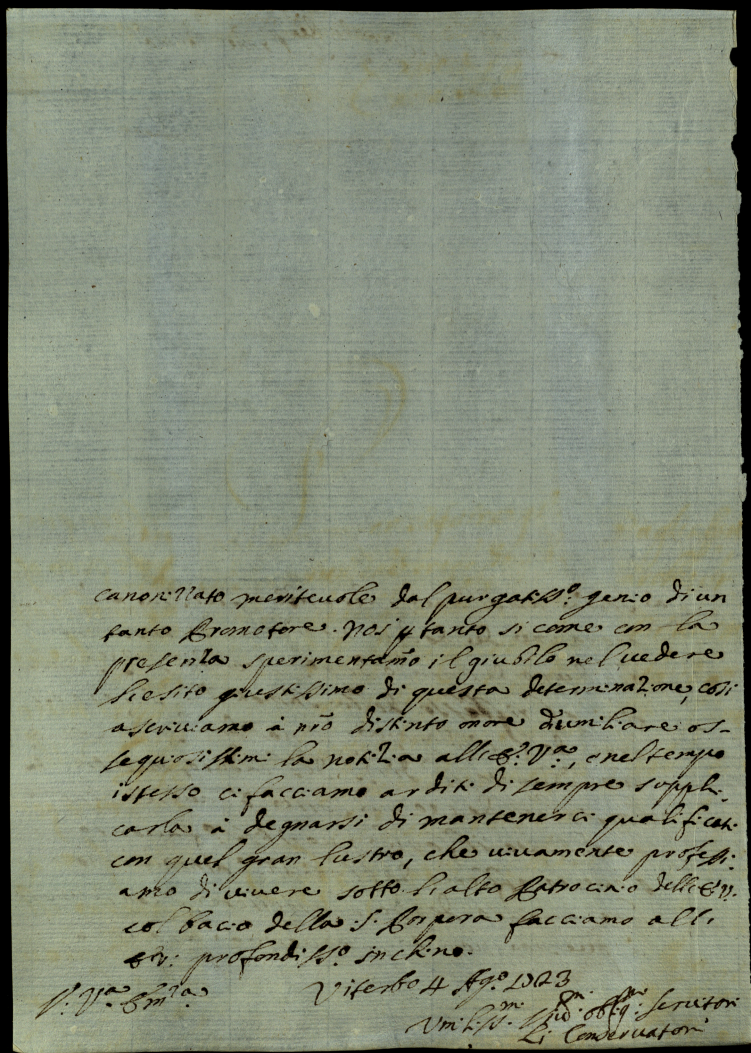 canonizzato meriteuole dal purgatiss:º genio di un
tanto Promotore. Noi p tanto si come con la
presenza sperimentamo il giubilo nel uedere
l'esito giustissimo di questa determinazione, così
ascriuiamo à nr̃o distinto onore d'umiliare os-
sequiosissimi la notizia all'E:ª V:ª, e nel tempo
istesso ci facciamo arditi di sempre suppli-
carla à degnarsi di mantenerci qualificati
con quel gran lustro, che uiuamente professi-
amo di uiuere sotto l'alto Patrocinio dell'E: V:
col bacio della S: Porpora facciamo all'
E: V: profondiss:º inchino.
Viterbo 4 Ag:º 1723
V:ª Em:ª
Vmiliss:mi
oblig:mi Seruitori
Li Conseruatori